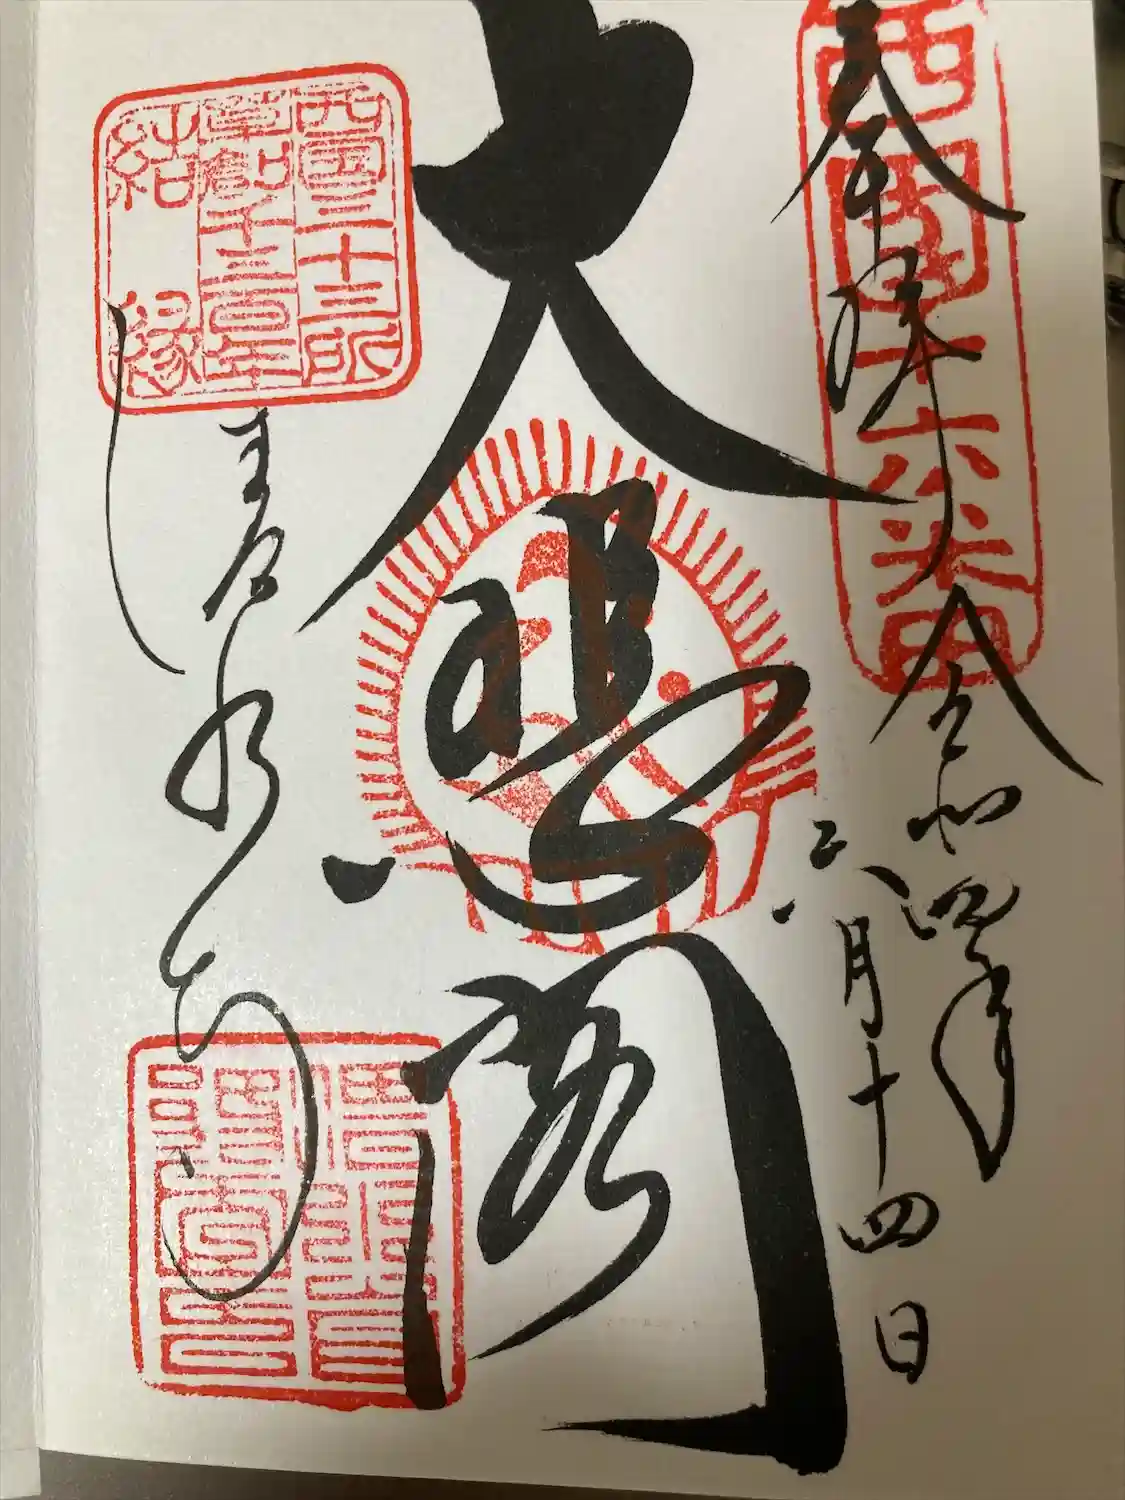 奉拝
西国十六番
令和四年
六月十四日
大悲閣
西国三十三所
草創千三百年
結縁
清水寺